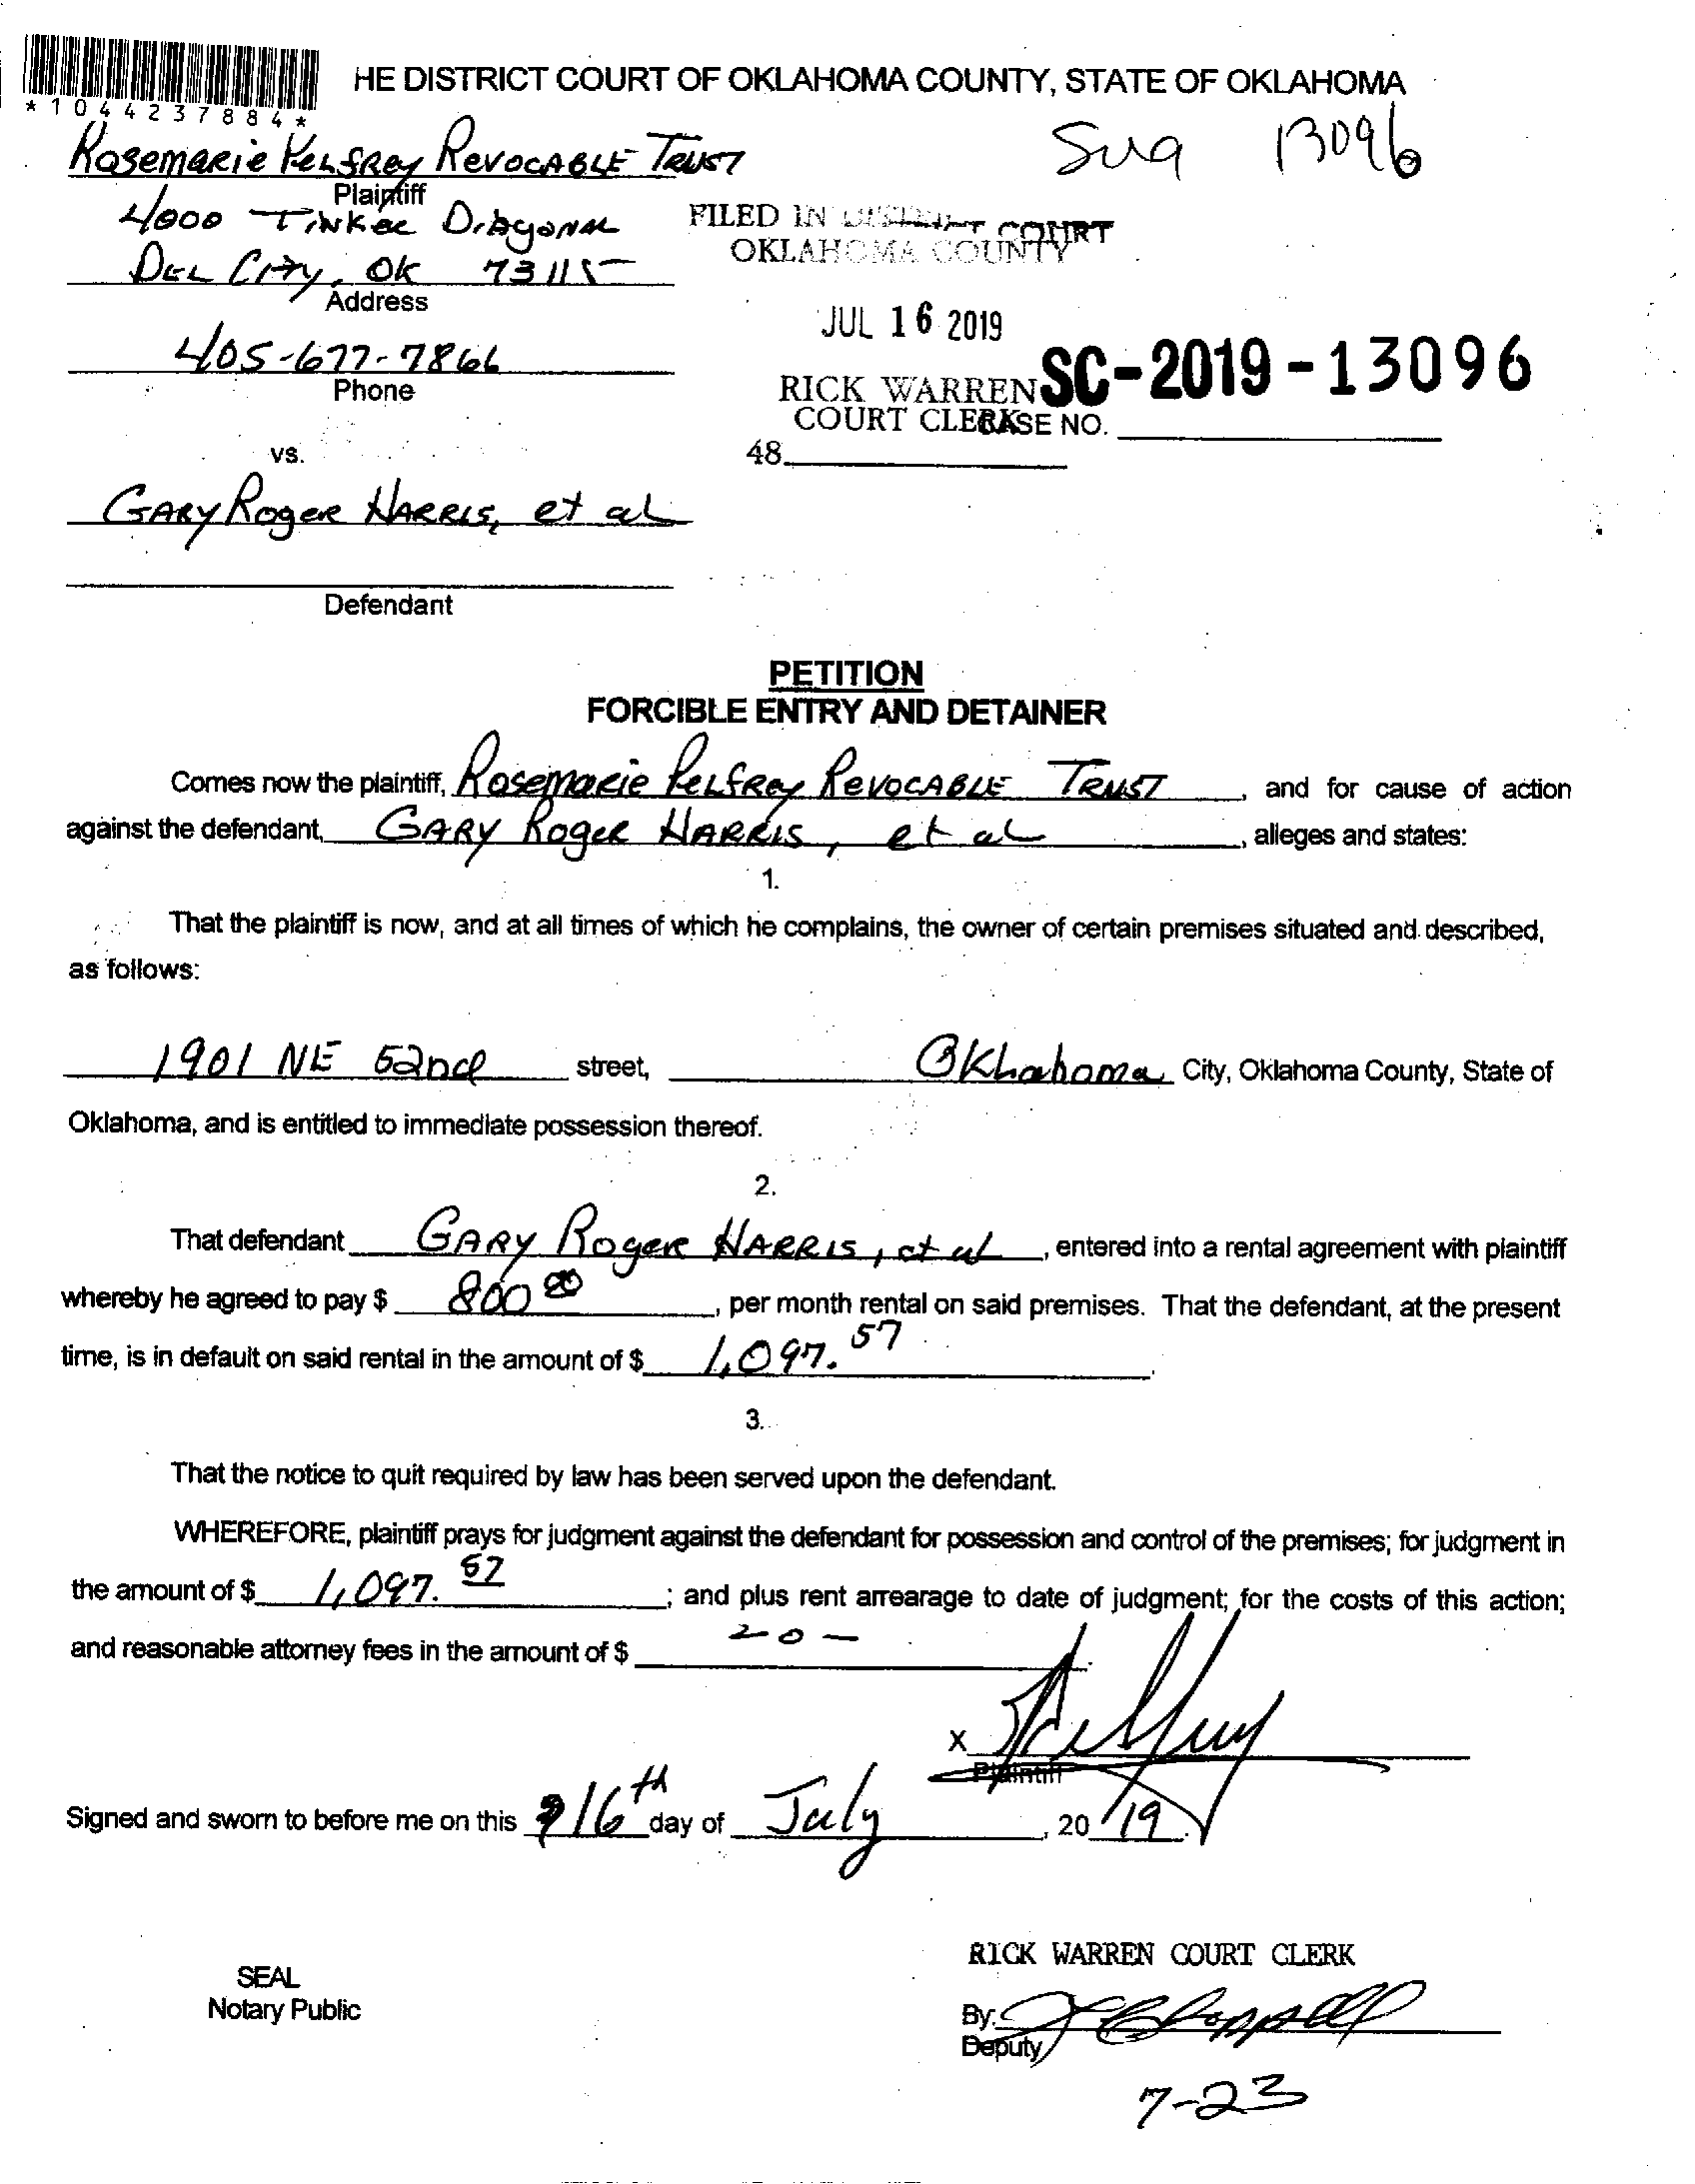 *1044237884*
HE DISTRICT COURT OF OKLAHOMA COUNTY, STATE OF OKLAHOMA
13096
Rosemarie Pelfrey Revocable Trust
Plaintiff
4000 Tinker Diagonal
Del City, OK 73115
Address
405-677-7866
Phone
FILED IN DISTRICT COURT
OKLAHOMA COUNTY
JUL 16 2019
RICK WARREN
COURT CLERK
SC-2019-13096
CASE NO.
48
vs.
Gary Roger Harris, et al
Defendant
PETITION
FORCIBLE ENTRY AND DETAINER
Comes now the plaintiff, Rosemarie Pelfrey Revocable Trust, and for cause of action
against the defendant, Gary Roger Harris, et al, alleges and states:
1.
That the plaintiff is now, and at all times of which he complains, the owner of certain premises situated and described,
as follows:
1901 NE 52nd street, Oklahoma City, Oklahoma County, State of
Oklahoma, and is entitled to immediate possession thereof.
2.
That defendant Gary Roger Harris, et al, entered into a rental agreement with plaintiff
whereby he agreed to pay $ 800 00, per month rental on said premises. That the defendant, at the present
time, is in default on said rental in the amount of $ 1,097.57.
3.
That the notice to quit required by law has been served upon the defendant.
WHEREFORE, plaintiff prays for judgment against the defendant for possession and control of the premises; for judgment in
the amount of $ 1,097.57; and plus rent arrearage to date of judgment; for the costs of this action;
and reasonable attorney fees in the amount of $
X
Plaintiff
Signed and sworn to before me on this 16th day of July, 20 19.
SEAL
Notary Public
RICK WARREN COURT CLERK
By:
Deputy
7-23